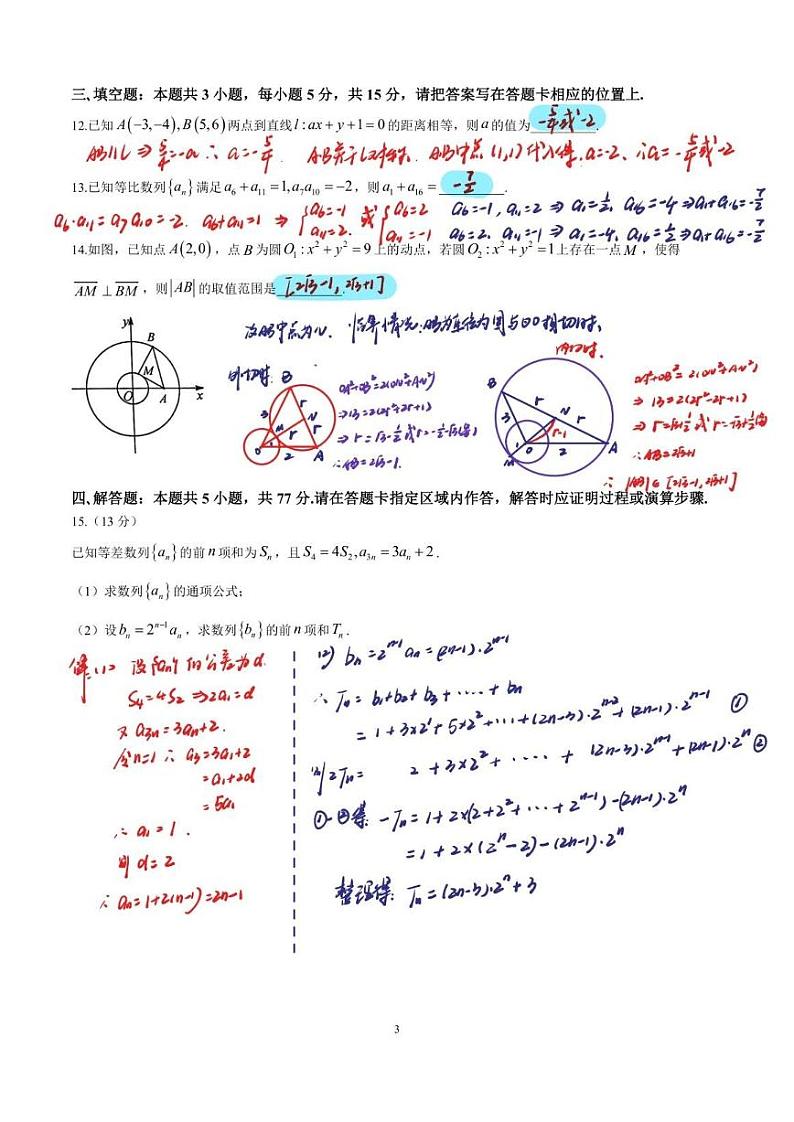 三、填空题：本题共 3 小题，每小题 5 分，共 15 分，请把答案写在答题卡相应的位置上.
12.已知 A(−3,−4),B(5,6)两点到直线l:ax+y+1=0的距离相等，则a的值为 -5/4或-2 .
AB∥l ⇒ 5/4=-a ∴ a=-5/4. AB中点(1,1)代入得.a=-2. ∴a=-5/4或-2
13.已知等比数列{aₙ}满足a₆+a₁₁=1,a₇a₁₀=−2，则a₁+a₁₆= -7/2 .
a₆·a₁₁=a₇a₁₀=-2. a₆+a₁₁=1 ⇒ {a₆=-1 a₁₁=2. 或 {a₆=2 a₁₁=-1
a₆=-1, a₁₁=2 ⇒ a₁=1/2, a₁₆=-4 ⇒a₁+a₁₆=-7/2
a₆=2, a₁₁=-1 ⇒ a₁=-4, a₁₆=1/2 ⇒a₁+a₁₆=-7/2
14.如图，已知点A(2,0)，点B为圆O₁:x²+y²=9上的动点，若圆O₂:x²+y²=1上存在一点M，使得
AM⊥BM，则|AB|的取值范围是 [2√3-1, 2√3+1]
设AB中点为N. 临界情况:AB为直径的圆与⊙O相切时.
y B M O A x
外切时.
B 3 r N r r O 2 A
OA²+OB²=2(ON²+AN²)
⇒13=2(2r²+2r+1)
⇒ r=√3-1/2或r=-1/2-√3(舍)
∴AB=2√3-1.
内切时.
B r N 3 r r-1 O 2 A M
OA²+OB²=2(ON²+AN²)
⇒ 13=2(2r²-2r+1)
⇒ r=√3+1/2或r=-√3+1/2(舍)
∴AB=2√3+1
∴ |AB|∈[2√3-1, 2√3+1]
四、解答题：本题共 5 小题，共 77 分.请在答题卡指定区域内作答，解答时应证明过程或演算步骤.
15.（13 分）
已知等差数列{aₙ}的前n项和为Sₙ，且S₄=4S₂,a₃ₙ=3aₙ+2.
（1）求数列{aₙ}的通项公式；
（2）设bₙ=2ⁿ⁻¹aₙ，求数列{bₙ}的前n项和Tₙ.
解:(1) 设{aₙ}的公差为d.
S₄=4S₂ ⇒2a₁=d
又a₃ₙ=3aₙ+2.
令n=1 ∴ a₃=3a₁+2
=a₁+2d
=5a₁
∴ a₁=1.
则d=2
∴ aₙ=1+2(n-1)=2n-1
(2) bₙ=2ⁿ⁻¹aₙ=(2n-1)·2ⁿ⁻¹
∴Tₙ=b₁+b₂+b₃+····+bₙ
=1+3×2¹+5×2²+···+(2n-3)·2ⁿ⁻²+(2n-1)·2ⁿ⁻¹ ①
则2Tₙ= 2+3×2²+····+(2n-3)·2ⁿ⁻¹+(2n-1)·2ⁿ ②
①-②得: -Tₙ=1+2×(2+2²+···+2ⁿ⁻¹)-(2n-1)·2ⁿ
=1+2×(2ⁿ-2)-(2n-1)·2ⁿ
整理得: Tₙ=(2n-3)·2ⁿ+3
3